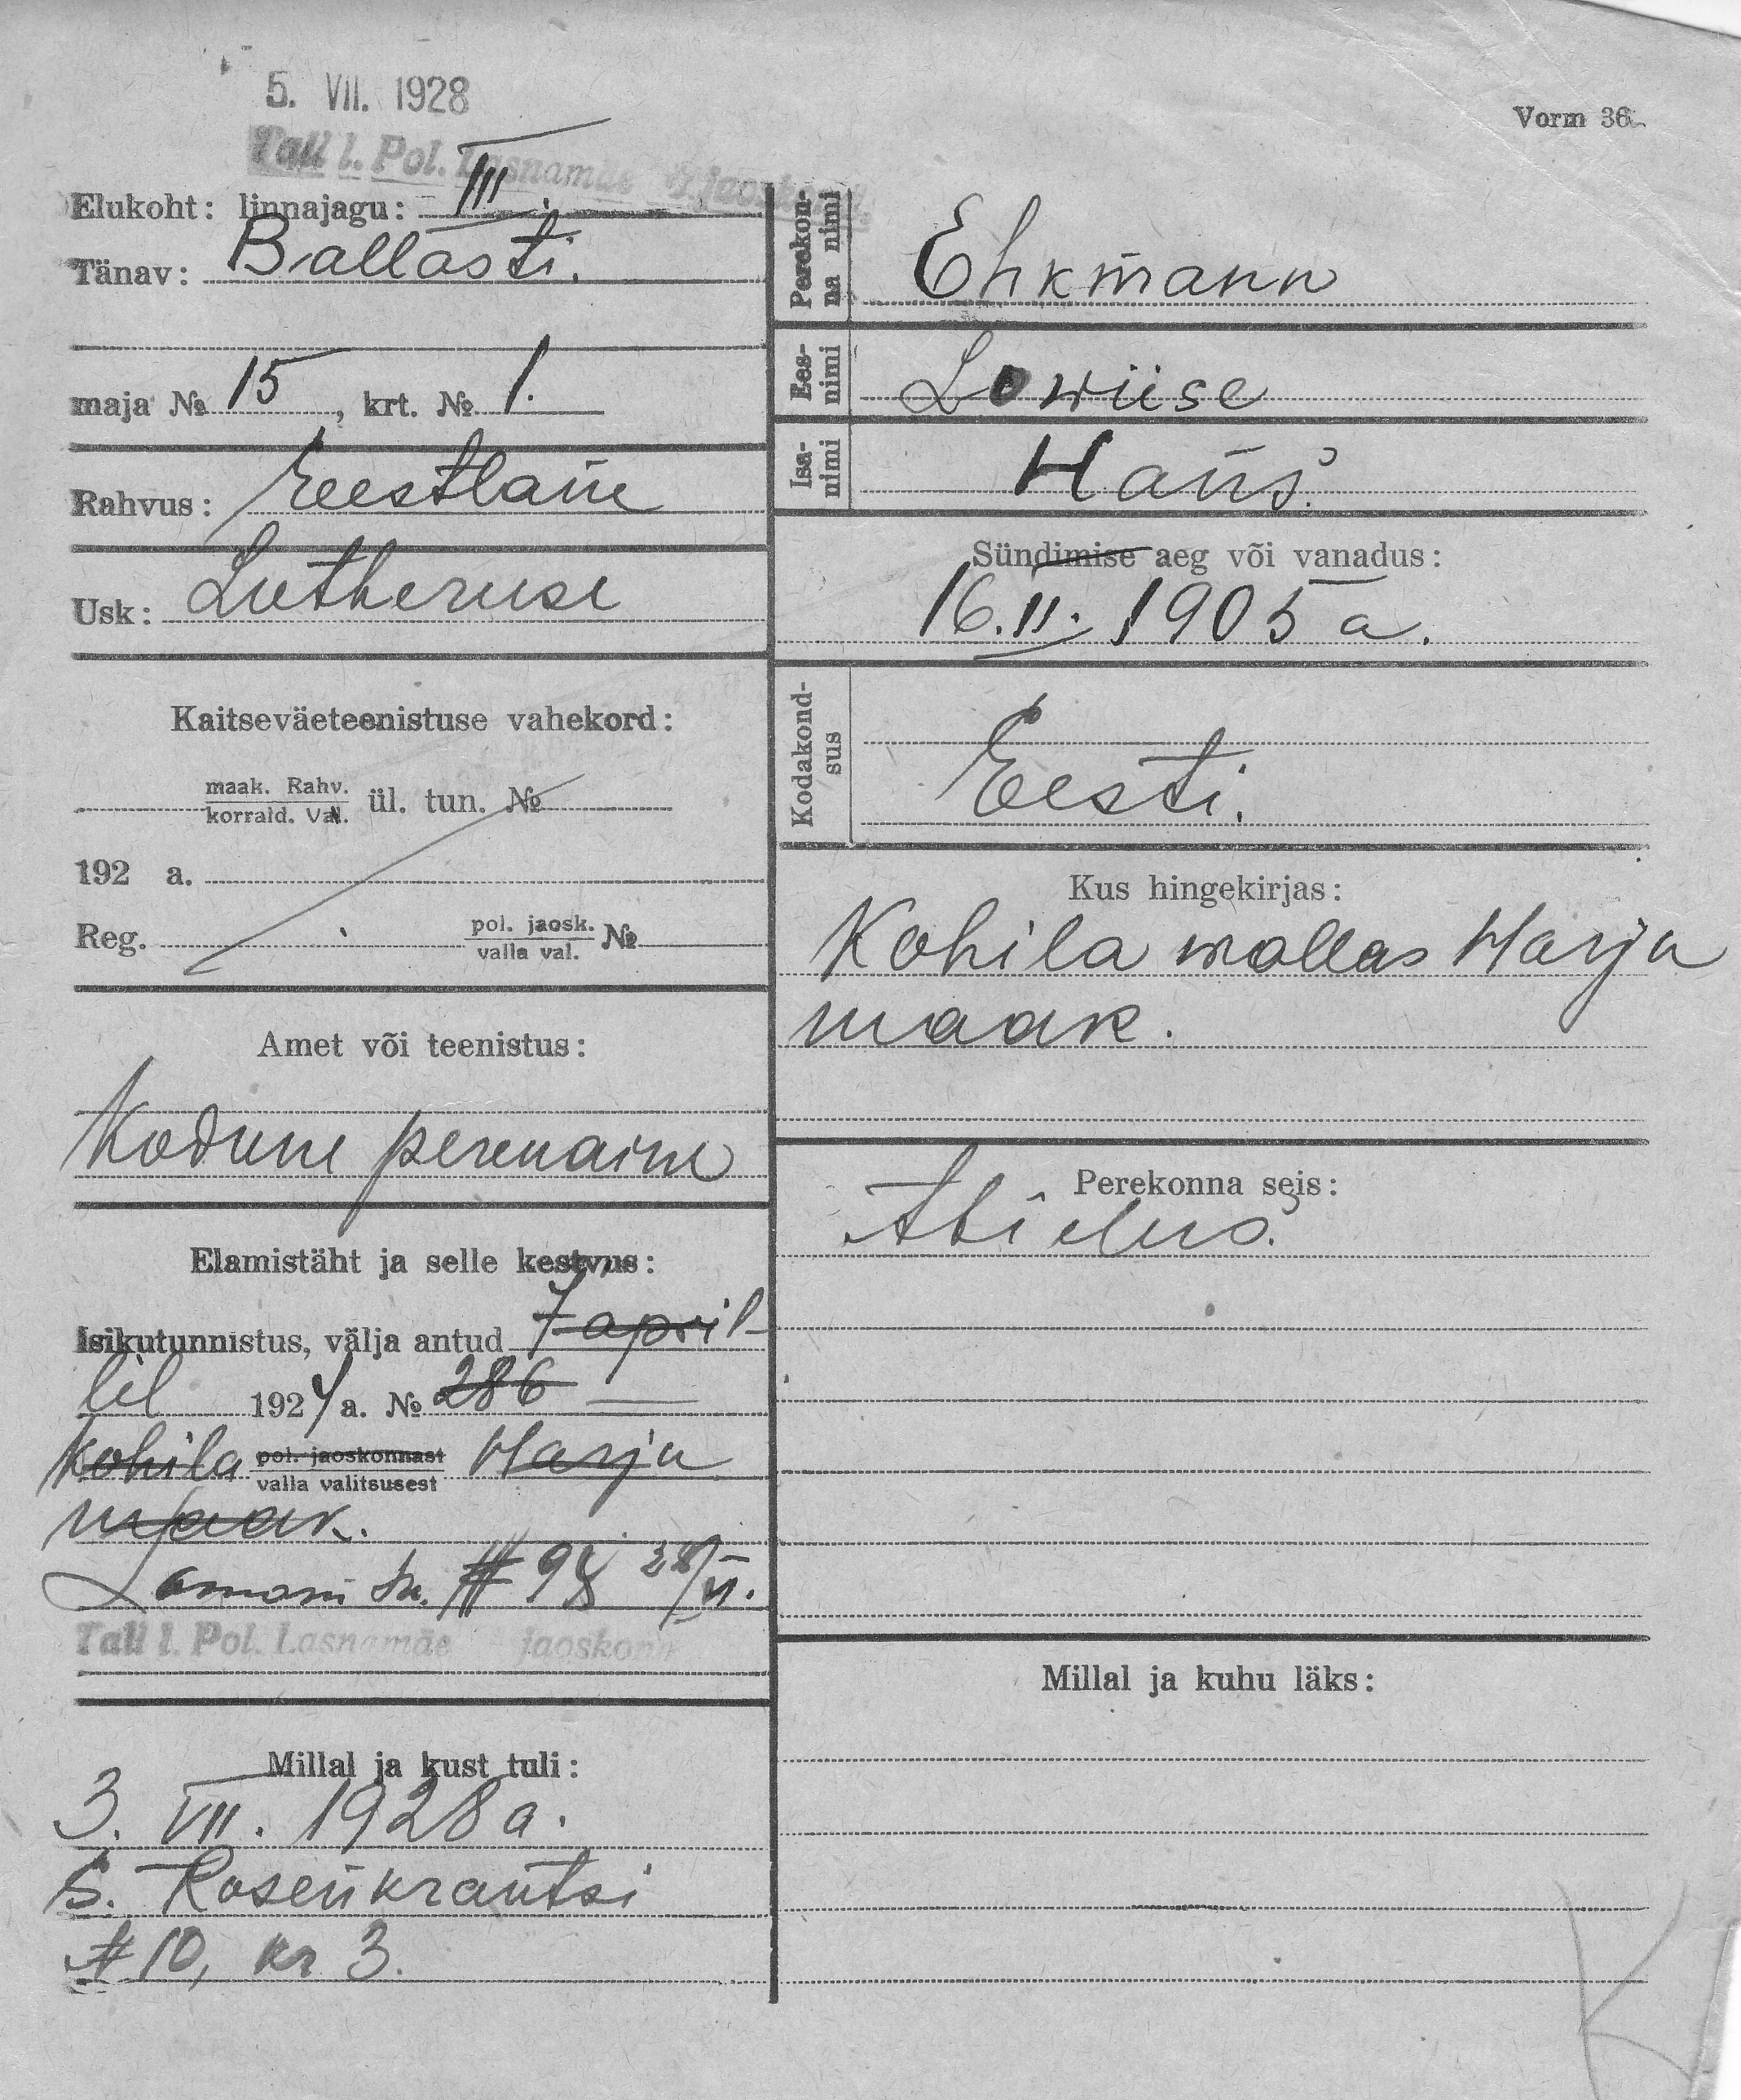 5. VII. 1928
Tall l. Pol. Lasnamäe jaoskond.
Vorm 36.
Elukoht: linnajagu: III.
Tänav: Ballasti.
maja № 15, krt. № 1.
Rahvus: Eestlane
Usk: Lutheruse
Kaitseväeteenistuse vahekord:
maak. Rahv.
korrald. Val. ül. tun. №
192 a.
Reg. pol. jaosk. №
valla val.
Amet või teenistus:
Kodune perenaine
Elamistäht ja selle kestvus:
Isikutunnistus, välja antud 7 april-
lil 1924 a. № 286
Kohila pol. jaoskonnast Harju
valla valitsusest
maak.
№ 98 28/VI.
Tall l. Pol. Lasnamäe jaoskond
Millal ja kust tuli:
3. VII. 1928 a.
S. Rosenkrantsi
№ 10, kr 3.
Perekonna nimi
Ehkmann
Eesnimi
Lowiise
Isanimi
Hans.
Sündimise aeg või vanadus:
16. II. 1905 a.
Kodakondsus
Eesti.
Kus hingekirjas:
Kohila wallas Harju
maak.
Perekonna seis:
Abielus.
Millal ja kuhu läks:
K